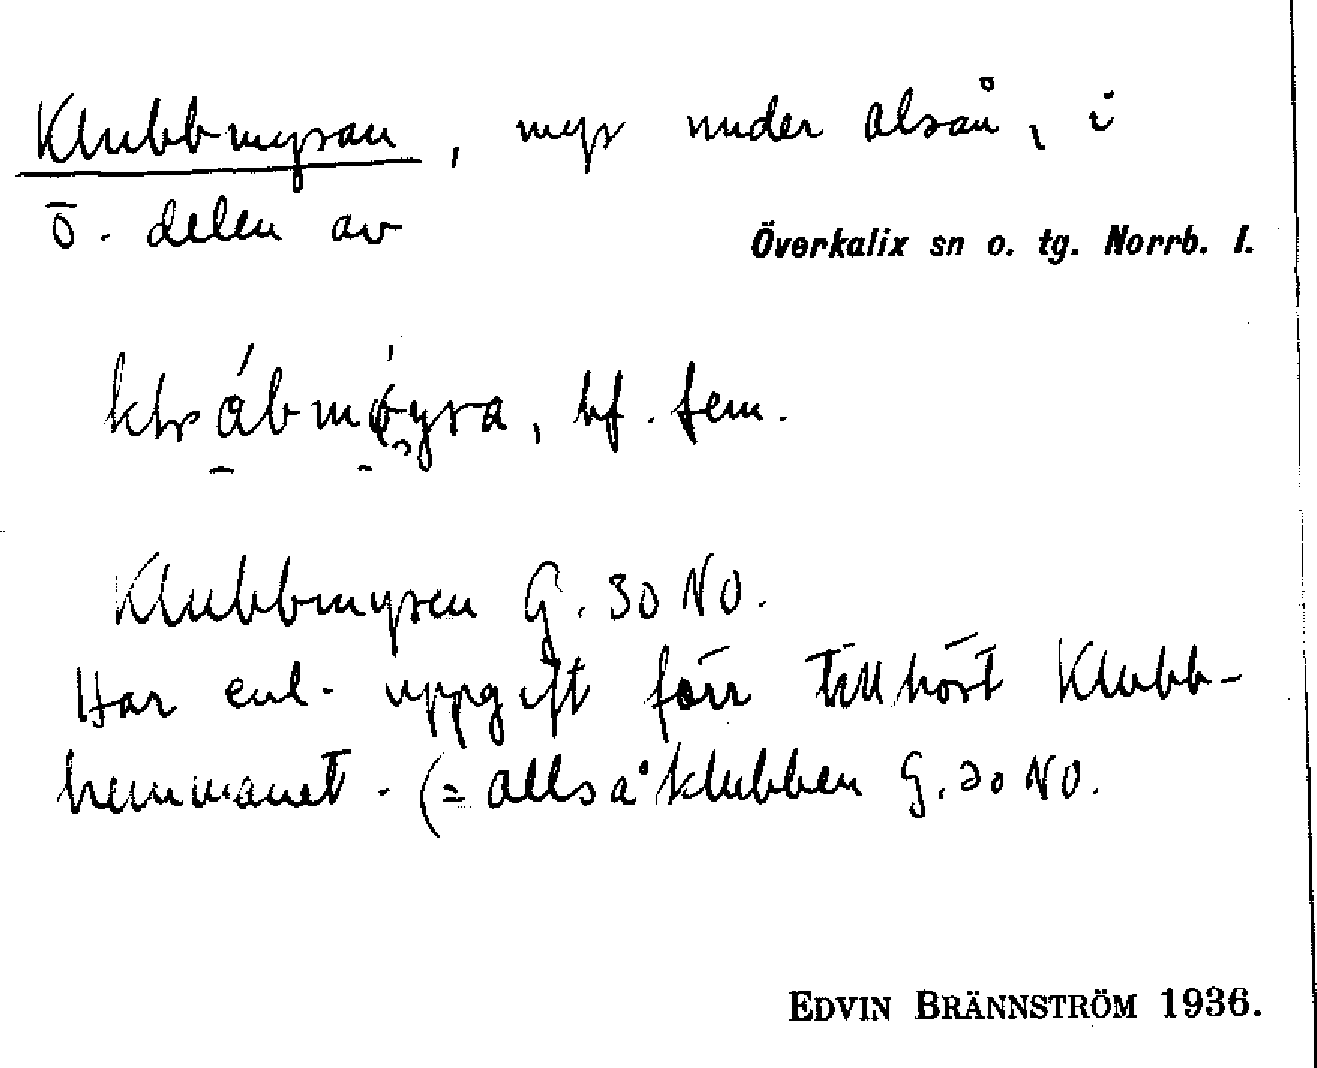 Klubbmyran, myr under Alsån, i
ö. delen av
Överkalix sn o. tg. Norrb. l.
bf. fem.
Klubbmyren G. 30 NO.
Har enl. uppgift förr tillhört Klubb-
hemmanet. (= Allså klubben G. 30 NO.
EDVIN BRÄNNSTRÖM 1936.